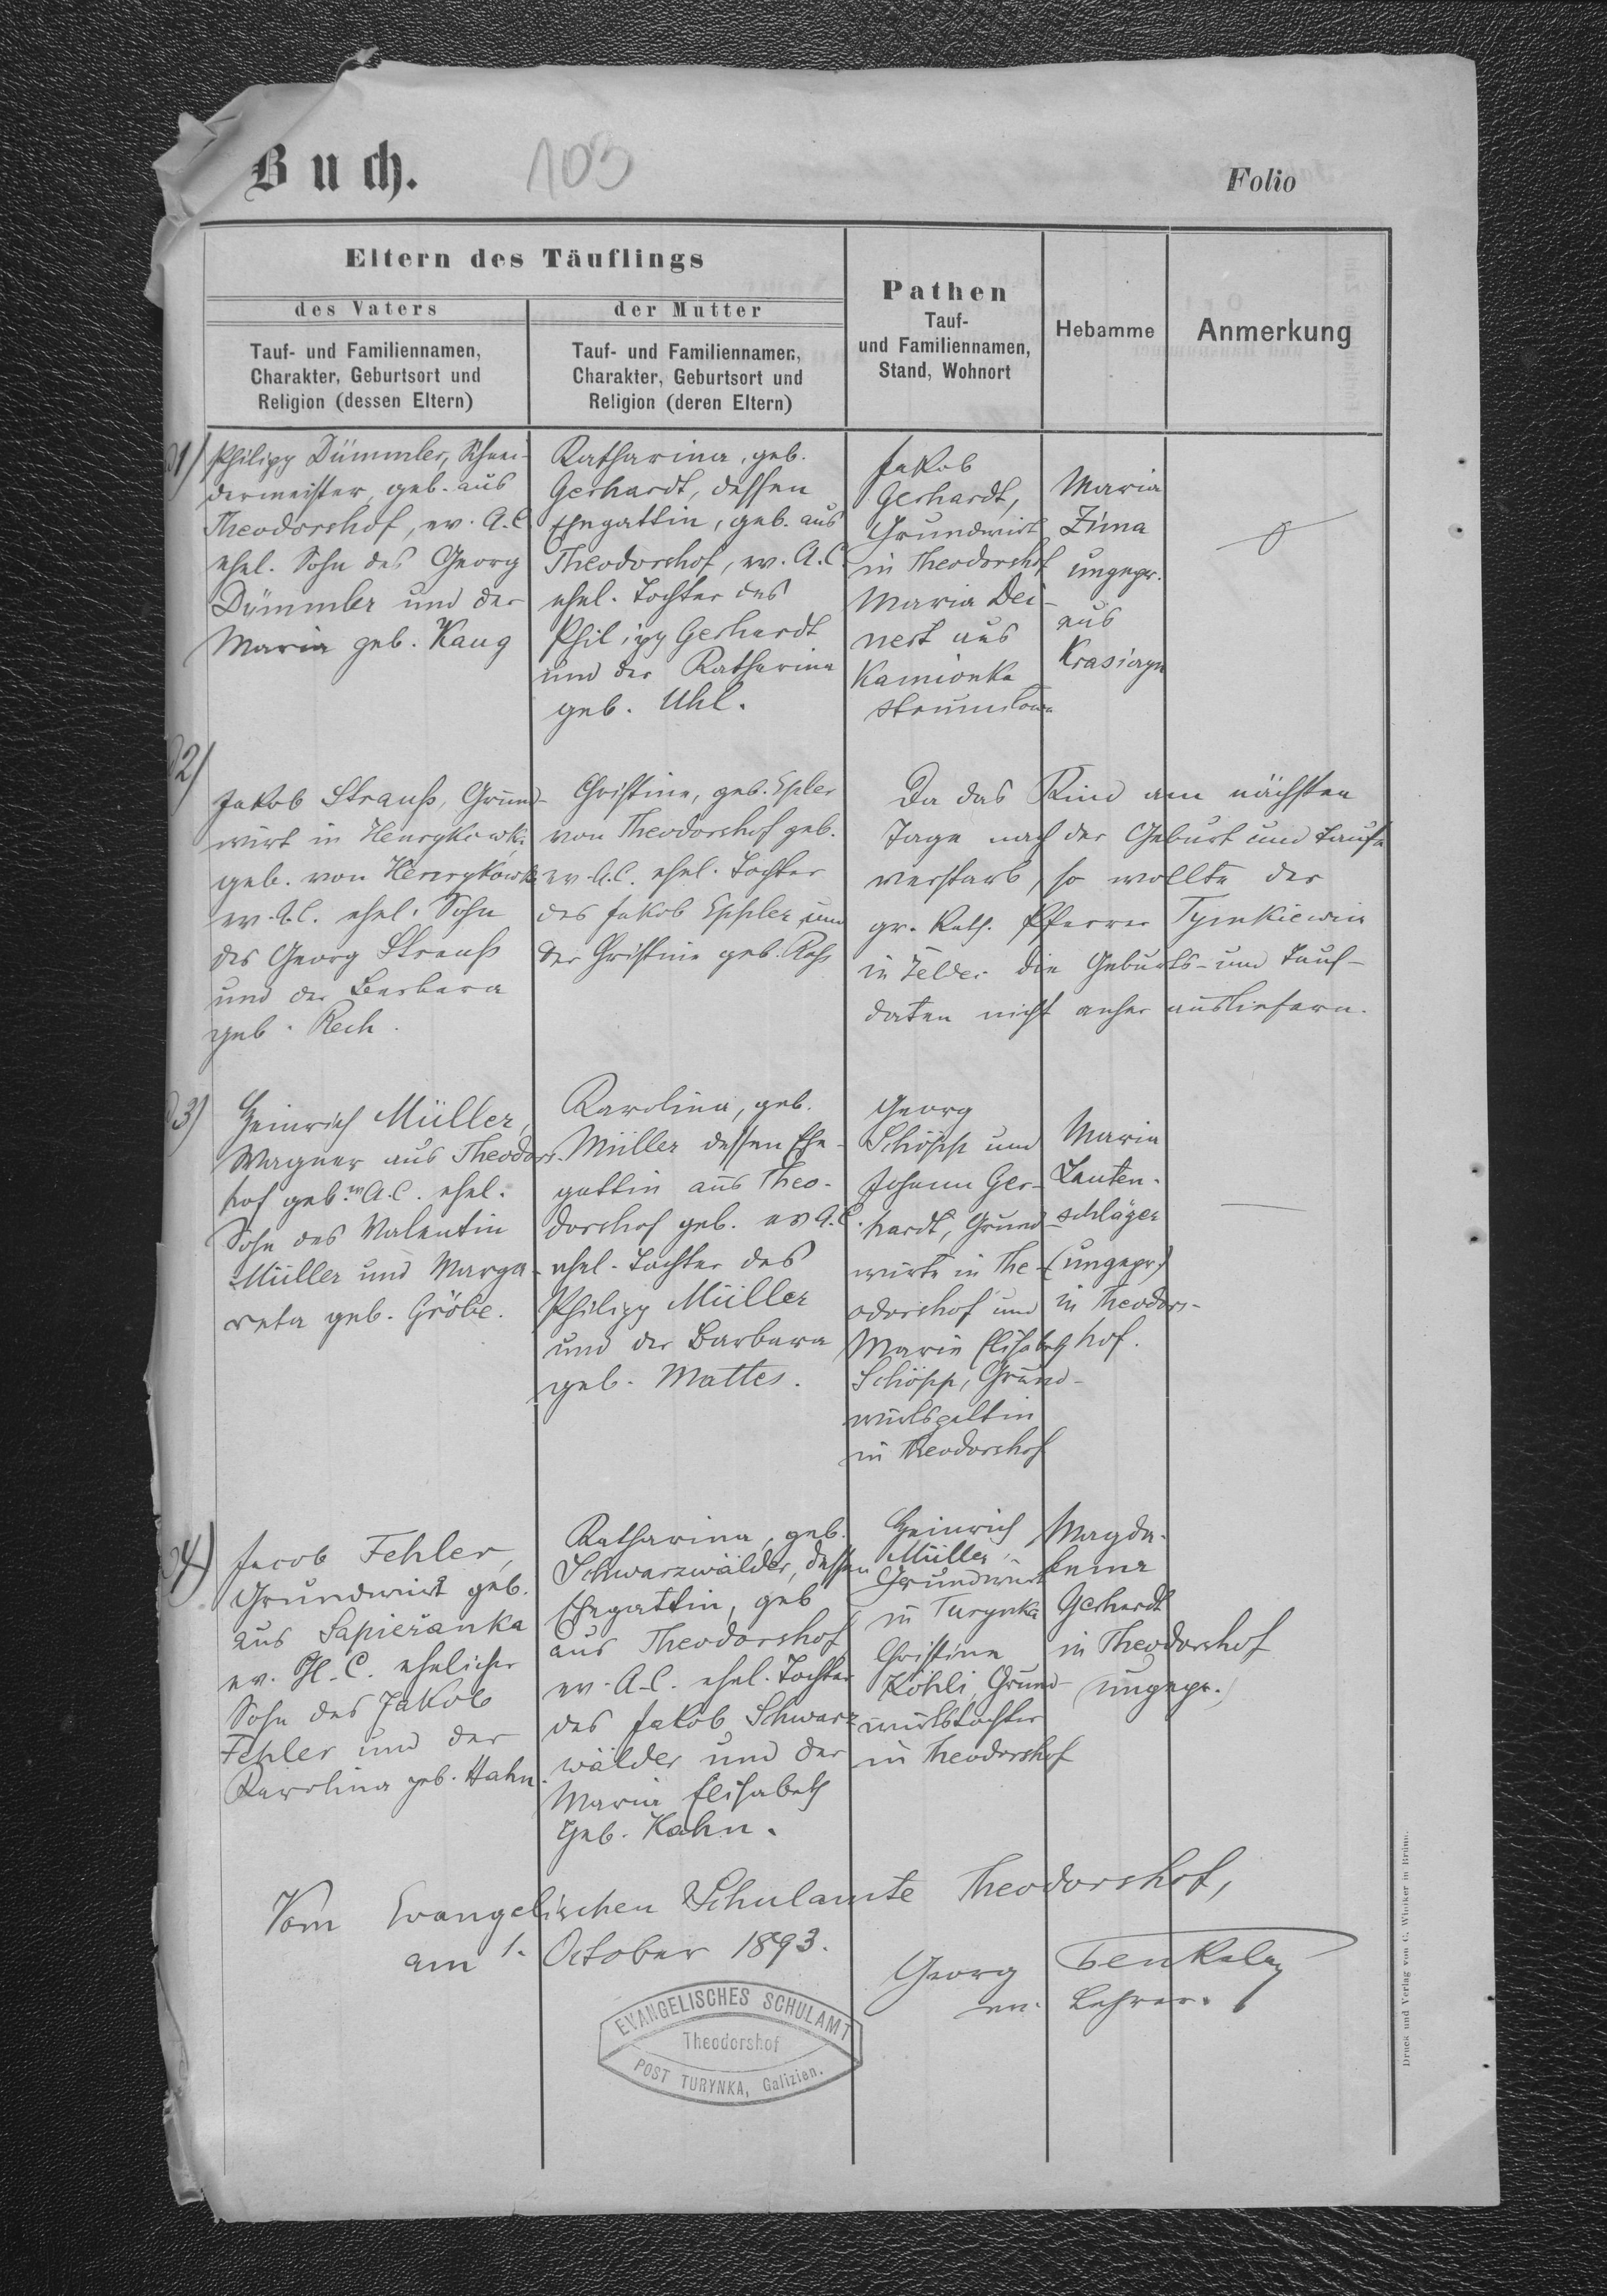 Buch.
103
Folio
Eltern des Täuflings
des Vaters
der Mutter
Tauf- und Familiennamen,
Charakter, Geburtsort und
Religion (dessen Eltern)
Tauf- und Familiennamen,
Charakter, Geburtsort und
Religion (deren Eltern)
Pathen
Tauf-
und Familiennamen,
Stand, Wohnort
Hebamme
Anmerkung
1)
Philipp Dümmler, Schnei-
dermeister, geb. aus
Theodorshof, ev. A.C.
ehel. Sohn des Georg
Dümmler und der
Maria geb. Kaug
Katharina, geb.
Gerhardt, dessen
Ehegattin, geb. aus
Theodorshof, ev. A.C.
ehel. Tochter des
Philipp Gerhardt
und der Katharina
geb. Uhl.
Jakob
Gerhardt,
Grundwirt
in Theodorshof
Maria Dei-
nert aus
Kamionka
strumilowa
Maria
Zima
ungepr.
aus
2)
Jakob Strauß, Grund-
wirt in
geb. von
ev. A.C. ehel. Sohn
des Georg Strauß
und der Barbara
geb. Rech.
Christine, geb. Epler
von Theodorshof geb.
ev. A.C. ehel. Tochter
des Jakob Eppler und
der Christine geb.
Da das Kind am nächsten
Tage nach der Geburt und Taufe
verstarb, so wollte der
gr. Kath. Pfarrer
in die Geburts- und Tauf-
daten nicht anher ausliefern.
3)
Heinrich Müller,
Wagner aus Theodors-
hof geb. ev A.C. ehel.
Sohn des Valentin
Müller und Marga-
reta geb. Gröbe.
Karolina, geb.
Müller dessen Ehe-
gattin aus Theo-
dorshof geb. ev A.C.
ehel. Tochter des
Philipp Müller
und der Barbara
geb. Mattes.
Georg
Schöpp und
Johann Ger-
hardt, Grund-
wirte in The-
odorshof und
Marie Elisabeth
Schöpp, Grund-
wirtsgattin
in Theodorshof
Maria
Lauten-
schläger
(ungepr.)
in Theodors-
hof.
4)
Jacob Fehler,
Grundwirt geb.
aus Sapieżanka
ev. H.C. ehelicher
Sohn des Jakob
Fehler und der
Karolina geb. Hahn.
Katharina, geb.
Schwarzwälder, dessen
Ehegattin, geb
aus Theodorshof
ev. A.C. ehel. Tochter
des Jakob Schwarz-
wälder und der
Maria Elisabeth
geb. Hahn.
Heinrich
Müller,
Grundwirt
in Turynka
Christine
Köhli, Grund-
wirtstochter
in Theodorshof
Magda-
lena
Gerhardt
in Theodorshof
(ungepr.)
Vom Evangelischen Schulamte Theodorshof,
am 1. October 1893.
Georg
ev. Lehrer.
EVANGELISCHES SCHULAMT
Theodorshof
POST TURYNKA, Galizien.
Druck und Verlag von C. Winiker in Brünn.